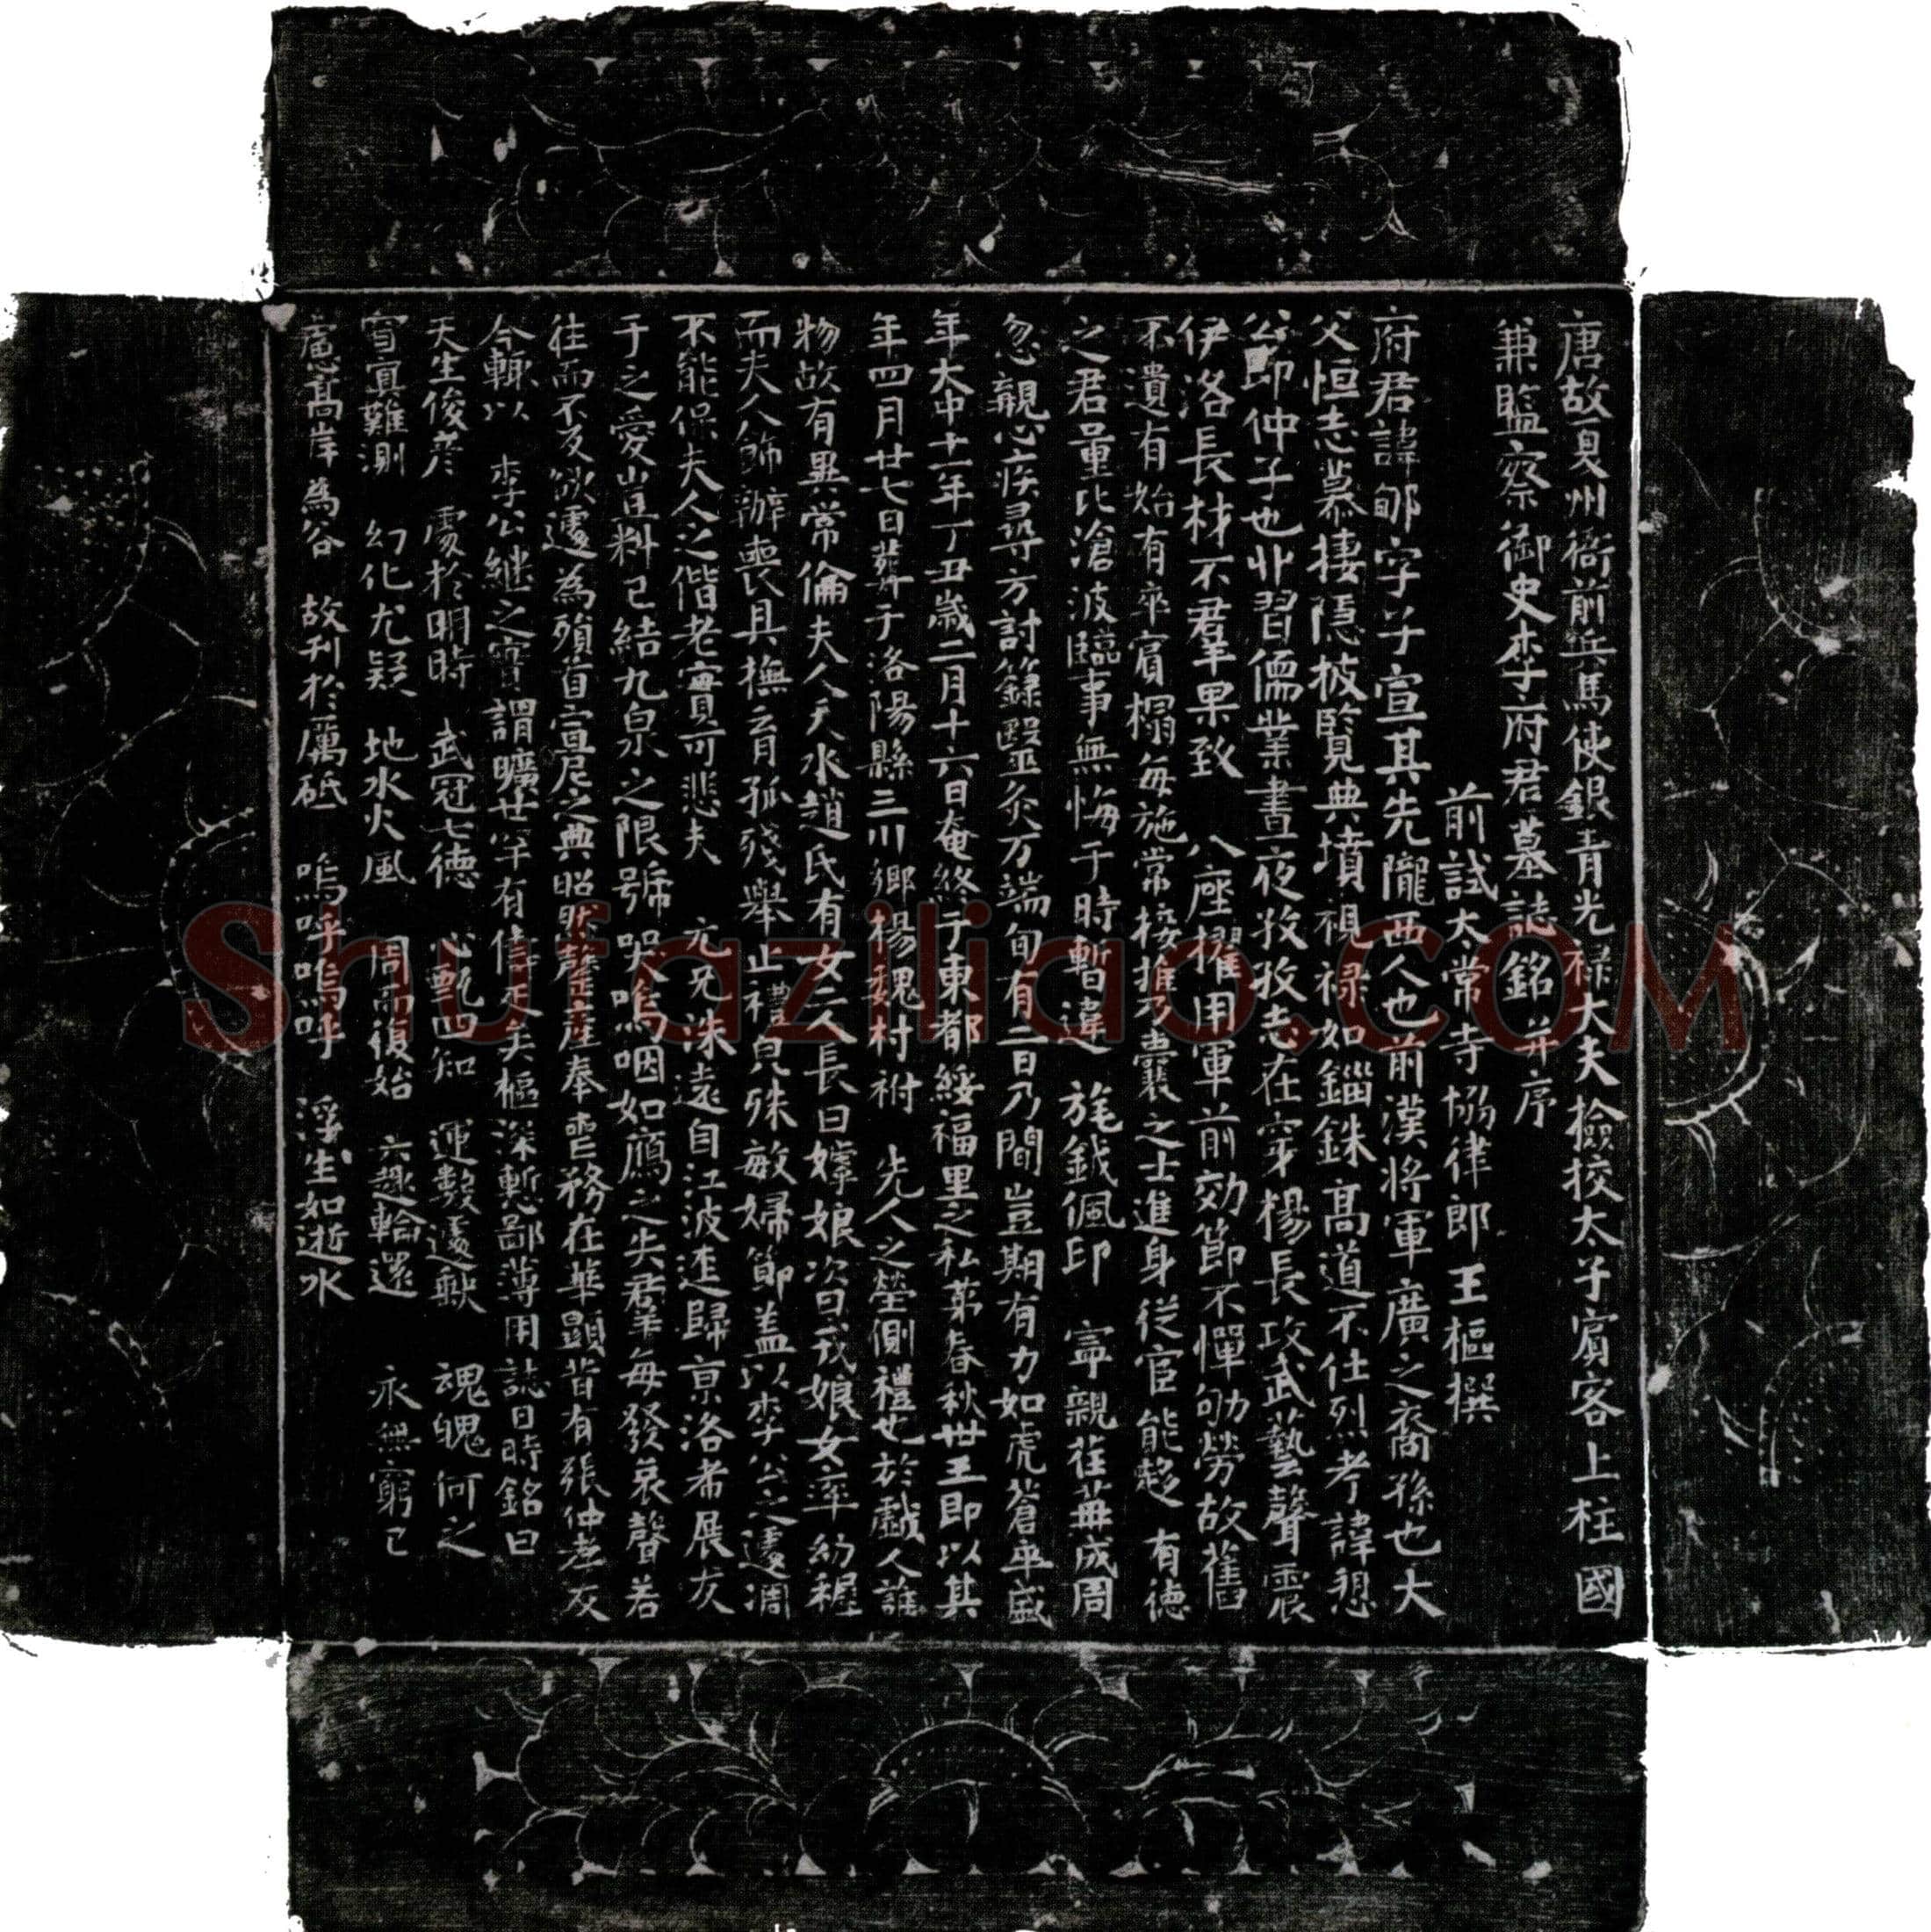 唐故夏州衙前兵馬使銀青光祿大夫檢挍太子賓客上柱國
兼監察御史李府君墓誌銘并序
前試太常寺協律郎王樞撰
府君諱郇字子宣其先隴西人也前漢將軍廣之裔孫也大
父恒志慕棲隱披覽典墳視祿如錙銖高道不仕烈考諱憩
公即仲子也丱習儒業晝夜孜孜志在穿楊長攻武藝聲震
伊洛長材不羣果致 八座擢用軍前効節不憚劬勞故舊
不遺有始有卒賓榻每施常接推乃囊之士進身從宦能趍 有德
之君量比滄波臨事無悔于時暫違 旄鉞佩印 寧親徃 成周
忽親心疾尋方討籙毉巫灸万端旬有二日乃間豈期有力如虎蒼卒
年大中十一年丁丑歲二月十六日奄終于東都綏福里之私第春秋卅王即以其
年四月廿七日葬于洛陽縣三川鄉楊魏村祔 先人之塋側禮也於戲人誰
物故有異常倫夫人天水趙氏有女二人長曰婷娘次曰戎娘女率幼稚
而夫人飾辦喪具撫育孤殘舉止禮皃殊敏婦節盖以李公之遽凋
不能保夫人之偕老實可悲夫 元兄洙遠自江波逩歸京洛希展友
于之愛豈料已結九泉之限號哭嗚咽如鴈之失羣每發哀聲若
往而不及欲遽為殯旨宣尼之典昭然罄產奉喪務在華顯昔有張仲孝友
今輙以 李公継之寔謂曠廿罕有儔疋矣樞深慙鄙薄用誌日時銘曰
天生俊彦 處於明時 武冠七德 心甄四知 運數遽歟 魂魄何之
冝冥難測 幻化尤疑 地水火風 周而復始 六趣輪還 永無窮已
慮高岸為谷 故刋於厲砥 嗚呼嗚呼 浮生如逝水
Shufaziliao.COM